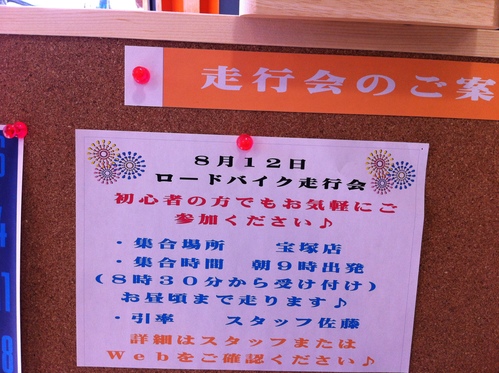 走行会のご案
8月12日
ロードバイク走行会
初心者の方でもお気軽にご
参加ください♪
・集合場所　　宝塚店
・集合時間　朝9時出発
(8時30分から受け付け)
お昼頃まで走ります♪
・引率　　スタッフ佐藤
詳細はスタッフまたは
Webをご確認ください♪